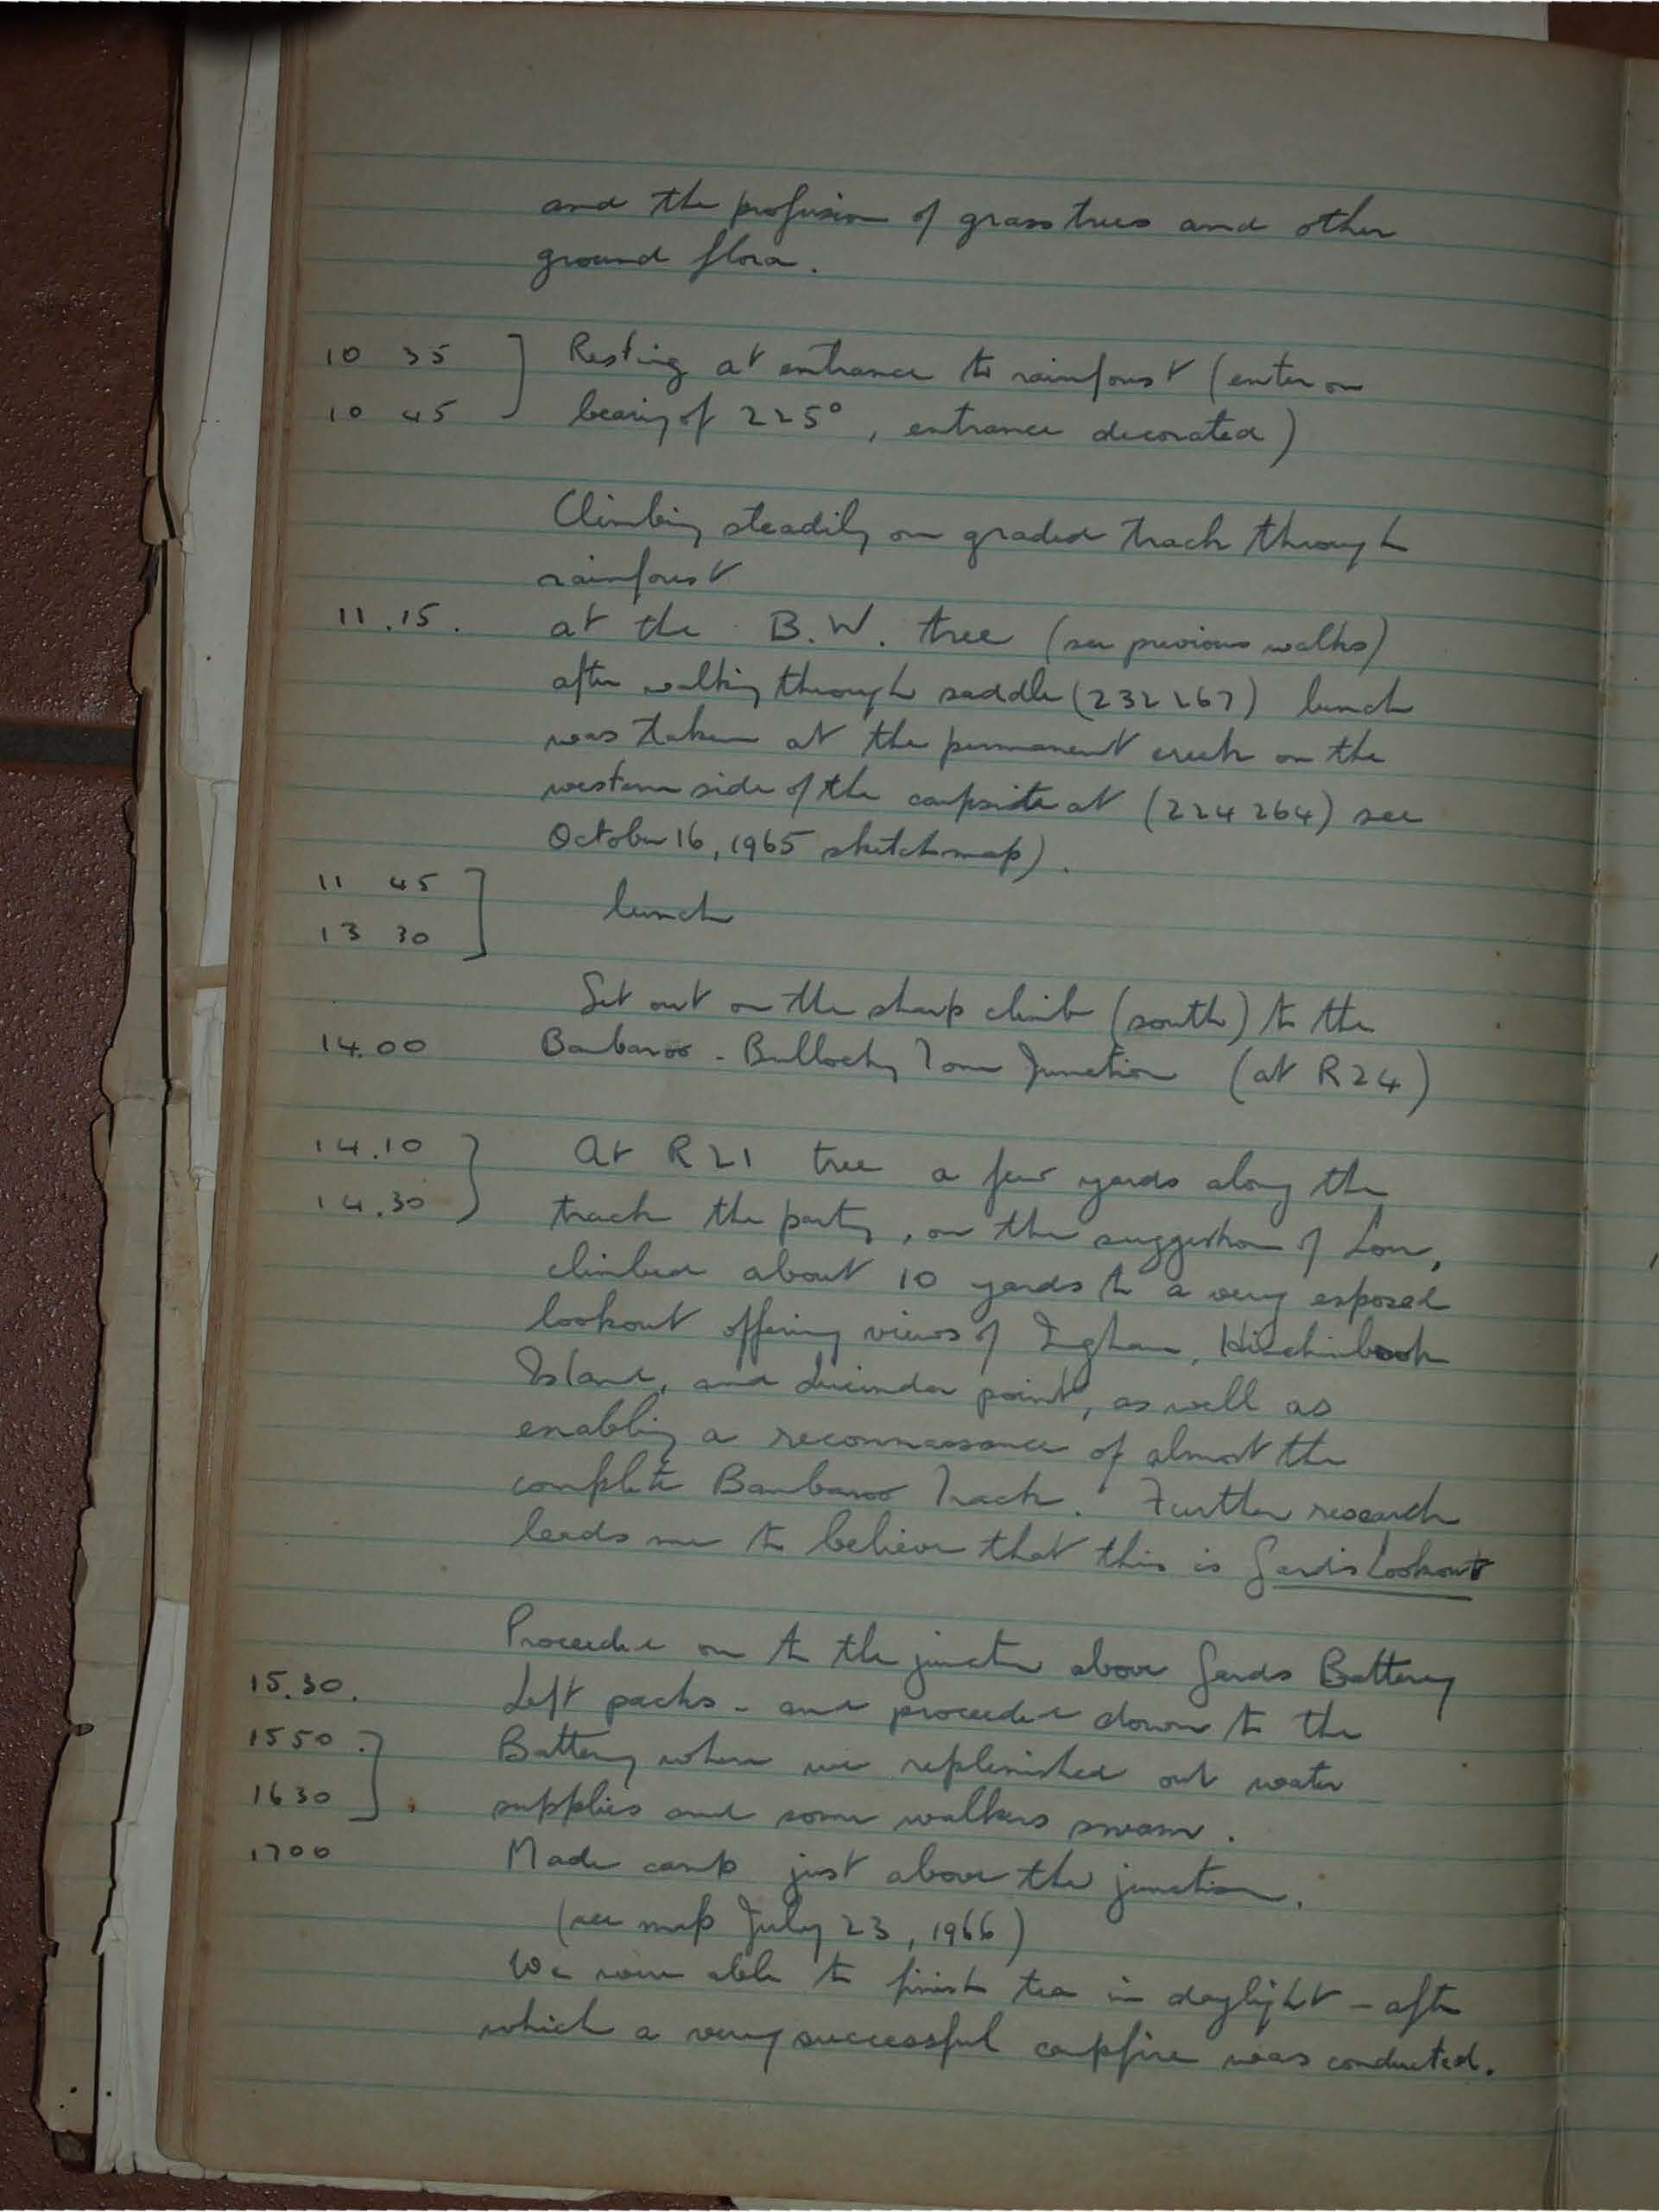 and the profusion of grass trees and other
ground flora.
10 35 ] Resting at entrance to rainforest (enter on
10 45 bearing of 225°, entrance decorated)
Climbing steadily on graded track through
rainforest
11.15. at the B.W. tree (see previous walks)
after walking through saddle (232267) lunch
was taken at the permanent creek on the
western side of the campsite at (224264) see
October 16, 1965 sketchmap).
11 45 ] lunch
13 30
Set out on the sharp climb (south) to the
14.00 Bambaroo - Bullocky Tom Junction (at R24)
14.10 } At R21 tree a few yards along the
14.30 track the party, on the suggestion of Lou,
climbed about 10 yards to a very exposed
lookout offering views of Ingham, Hinchinbrook
Island, and Lucinda point, as well as
enabling a reconnassance of almost the
complete Bambaroo Track. Further research
leads me to believe that this is Lookout
Proceeded on to the junctn above Battery
15.30. Left packs - and proceeded down to the
1550. ] Battery where we replenished out water
1630 supplies and some walkers swam.
1700 Made camp just above the junction.
(see map July 23, 1966)
We were able to finish tea in daylight - after
which a very successful campfire was conducted.